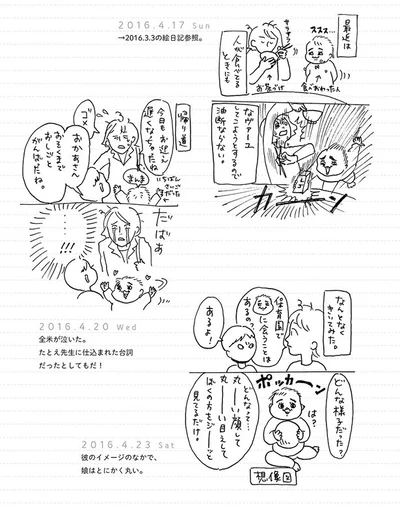 2016.4.17 Sun
→2016.3.3の絵日記参照。
最近は
ススス…
サラサラ
人が食べてる
ときにも
お茶づけ
食べおわった人
油断ならない!
ガーーン
帰り道
今日もお迎え
遅くなっちゃったね
ゴメ
まんま
おかあさん
おそくまで
おしごと
がんばったね。
だばあ
…
…!!
2016.4.20 Wed
全米が泣いた。
たとえ先生に仕込まれた台詞
だったとしてもだ!
なんとなく
きいてみた。
保育園で
に会うことは
あるの?
あるよ!
どんな様子だった?
ポッカーン
は?
どんなって…
丸ーい顔して
丸ーい目えして
ぼくの方をジーッと
見てるだけ。
想像図
2016.4.23 Sat
彼のイメージのなかで、
娘はとにかく丸い。